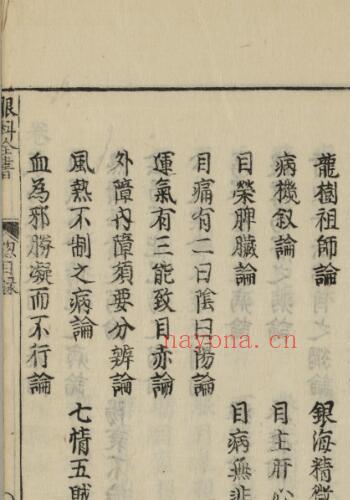 龍樹祖師論　銀海精微
病機叙論　目主肝心
目榮脾臟論　目病無非
目痛有二曰陰曰陽論
運氣有三能致目赤論
外障內障須要分辨論
風熱不制之病論　七情五賊
血為邪勝凝而不行論
眼科全書　總目錄
nayona.cn